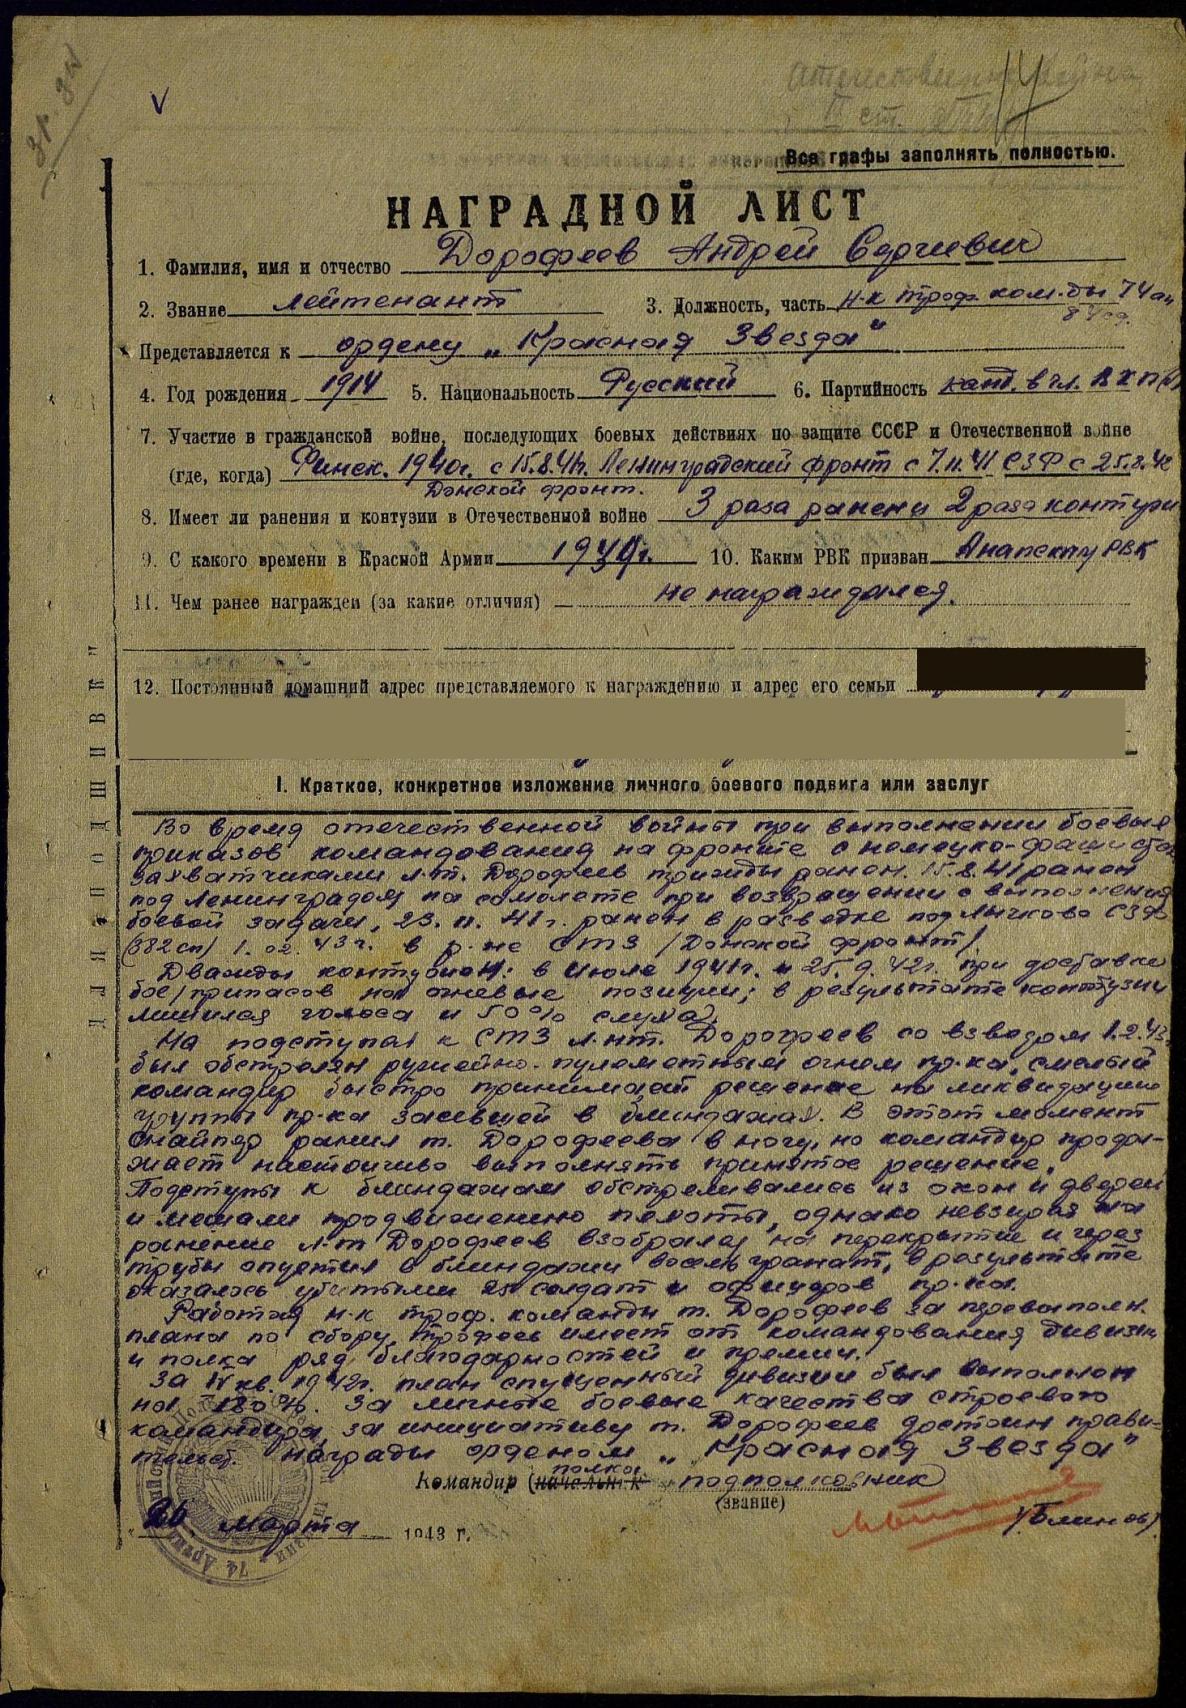 Отечественная война
II ст.
14
Все графы заполнять полностью.
НАГРАДНОЙ ЛИСТ
1. Фамилия, имя и отчество Дорофеев Андрей Сергиевич
2. Звание лейтенант 3. Должность, часть н-к троф. ком-ды 74 ап
84 сд.
Представляется к ордену „Красная Звезда"
4. Год рождения 1914 5. Национальность Русский 6. Партийность канд. в чл. ВКП(б)
7. Участие в гражданской войне, последующих боевых действиях по защите СССР и Отечественной войне
(где, когда) Финск. 1940г. с 15.8.41г. Ленинградский фронт с 7.11.41 СЗФ с 25.8.42
Донской фронт.
8. Имеет ли ранения и контузии в Отечественной войне 3 раза ранен и 2 раза контужен
9. С какого времени в Красной Армии 1939г. 10. Каким РВК призван Анапским РВК
11. Чем ранее награжден (за какие отличия) не награждался.
12. Постоянный домашний адрес представляемого к награждению и адрес его семьи
ДЛЯ ПОДШИВКИ
I. Краткое, конкретное изложение личного боевого подвига или заслуг
Во время отечественной войны при выполнении боевых
приказов командования на фронте с немецко-фашистск
захватчиками л-т. Дорофеев трижды ранен. 15.8.41 ранен
под Ленинградом на самолете при возвращении с выполнения
боевой задачи, 23. 11. 41г. ранен в разведке под Лычково СЗФ
(382 сп) 1. 02. 43 г. в р-не СТЗ /Донской фронт/.
Дважды контужен: в июле 1941г. и 25. 9. 42г. при доставке
бое/припасов на огневые позиции; в результате контузии
лишился голоса и 50% слуха.
На подступах к СТЗ л-нт. Дорофеев со взводом 1.2.43г.
был обстрелян ружейно-пулеметным огнем пр-ка, смелый
командир быстро принимает решение на ликвидацию
группы пр-ка засевшей в блиндажах. В этот момент
снайпер ранил т. Дорофеева в ногу, но командир продол-
жает настойчиво выполнять принятое решение.
Подступы к блиндажам обстреливались из окон и дверей
и мешали продвижению пехоты, однако невзирая на
ранение л-т Дорофеев взобрался на перекрытие и через
трубы опустил в блиндажи восемь гранат, в результате
оказалось убитыми 25 солдат и офицеров пр-ка.
Работая н-к троф. команды т. Дорофеев за перевыполн.
плана по сбору трофеев имеет от командования дивизии
и полка ряд благодарностей и премии.
За IV кв. 1942г. план спущенный дивизии был выполнен
на 180%. За личные боевые качества строевого
командира, за инициативу т. Дорофеев достоин прави-
тельст. награды орденом „Красная Звезда"
Командир (начальник полка подполковник
(звание)
/Блинов/.
26 марта 1943 г.